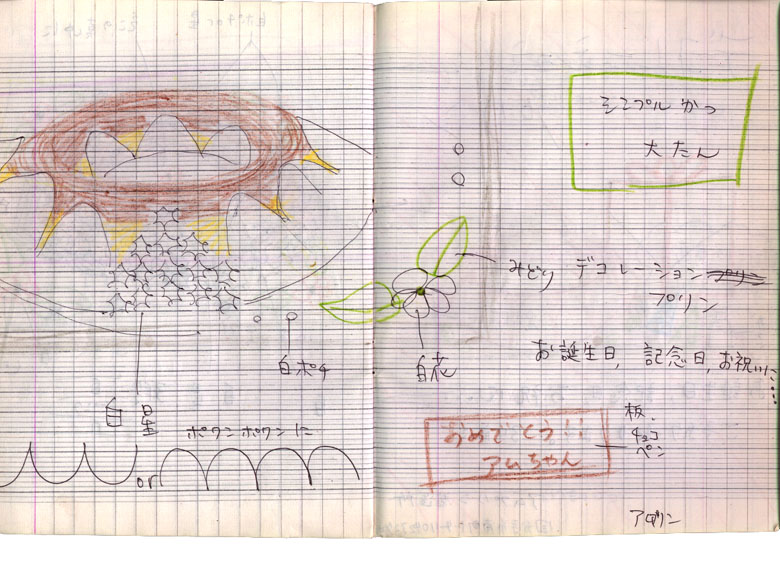 白ポチ
白星
ポワンポワンに
or
シンプルかつ
大たん
みどり
デコレーションプリン
プリン
白花
お誕生日、記念日、お祝いに…
おめでとう!!
アムちゃん
板、
チョコ
ペン